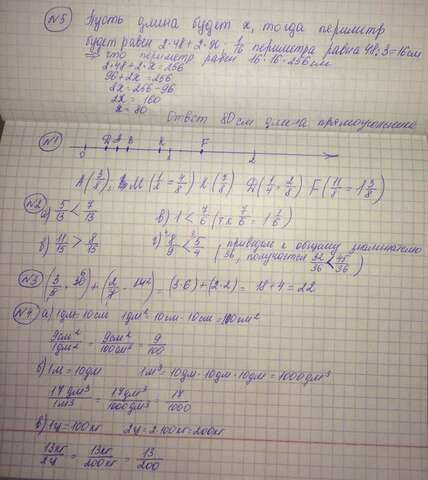 №5 Пусть длина будет x, тогда периметр
будет равен 2·48+2·x. 1/16 периметра равна 48:3=16см
⇒ что периметр равен 16·16=256см
2·48+2·x=256
96+2x=256
2x=256-96
2x=160
x=80
Ответ 80см длина прямоугольника
№1
0 1 2 F
A(3/8), M(1/2=4/8) K(7/8) D(1/4=2/8) F(11/8=1 3/8)
№2 а) 5/13 < 7/13 в) 1 < 7/6 (тк 7/6=1 1/6)
б) 11/15 > 8/15 г) 8/9 < 5/4 (приводим к общему знаменателю
36, получается 32/36 < 45/36)
= (3·6)+(2·2) = 18+4=22
№4 а) 1дм=10см 1дм²=10см·10см=100см²
9см²/1дм² = 9см²/100см² = 9/100
б) 1м=10дм 1м³=10дм·10дм·10дм=1000дм³
17дм³/1м³ = 17дм³/1000дм³ = 17/1000
в) 1ц=100кг 2ц=2·100кг=200кг
13кг/2ц = 13кг/200кг = 13/200